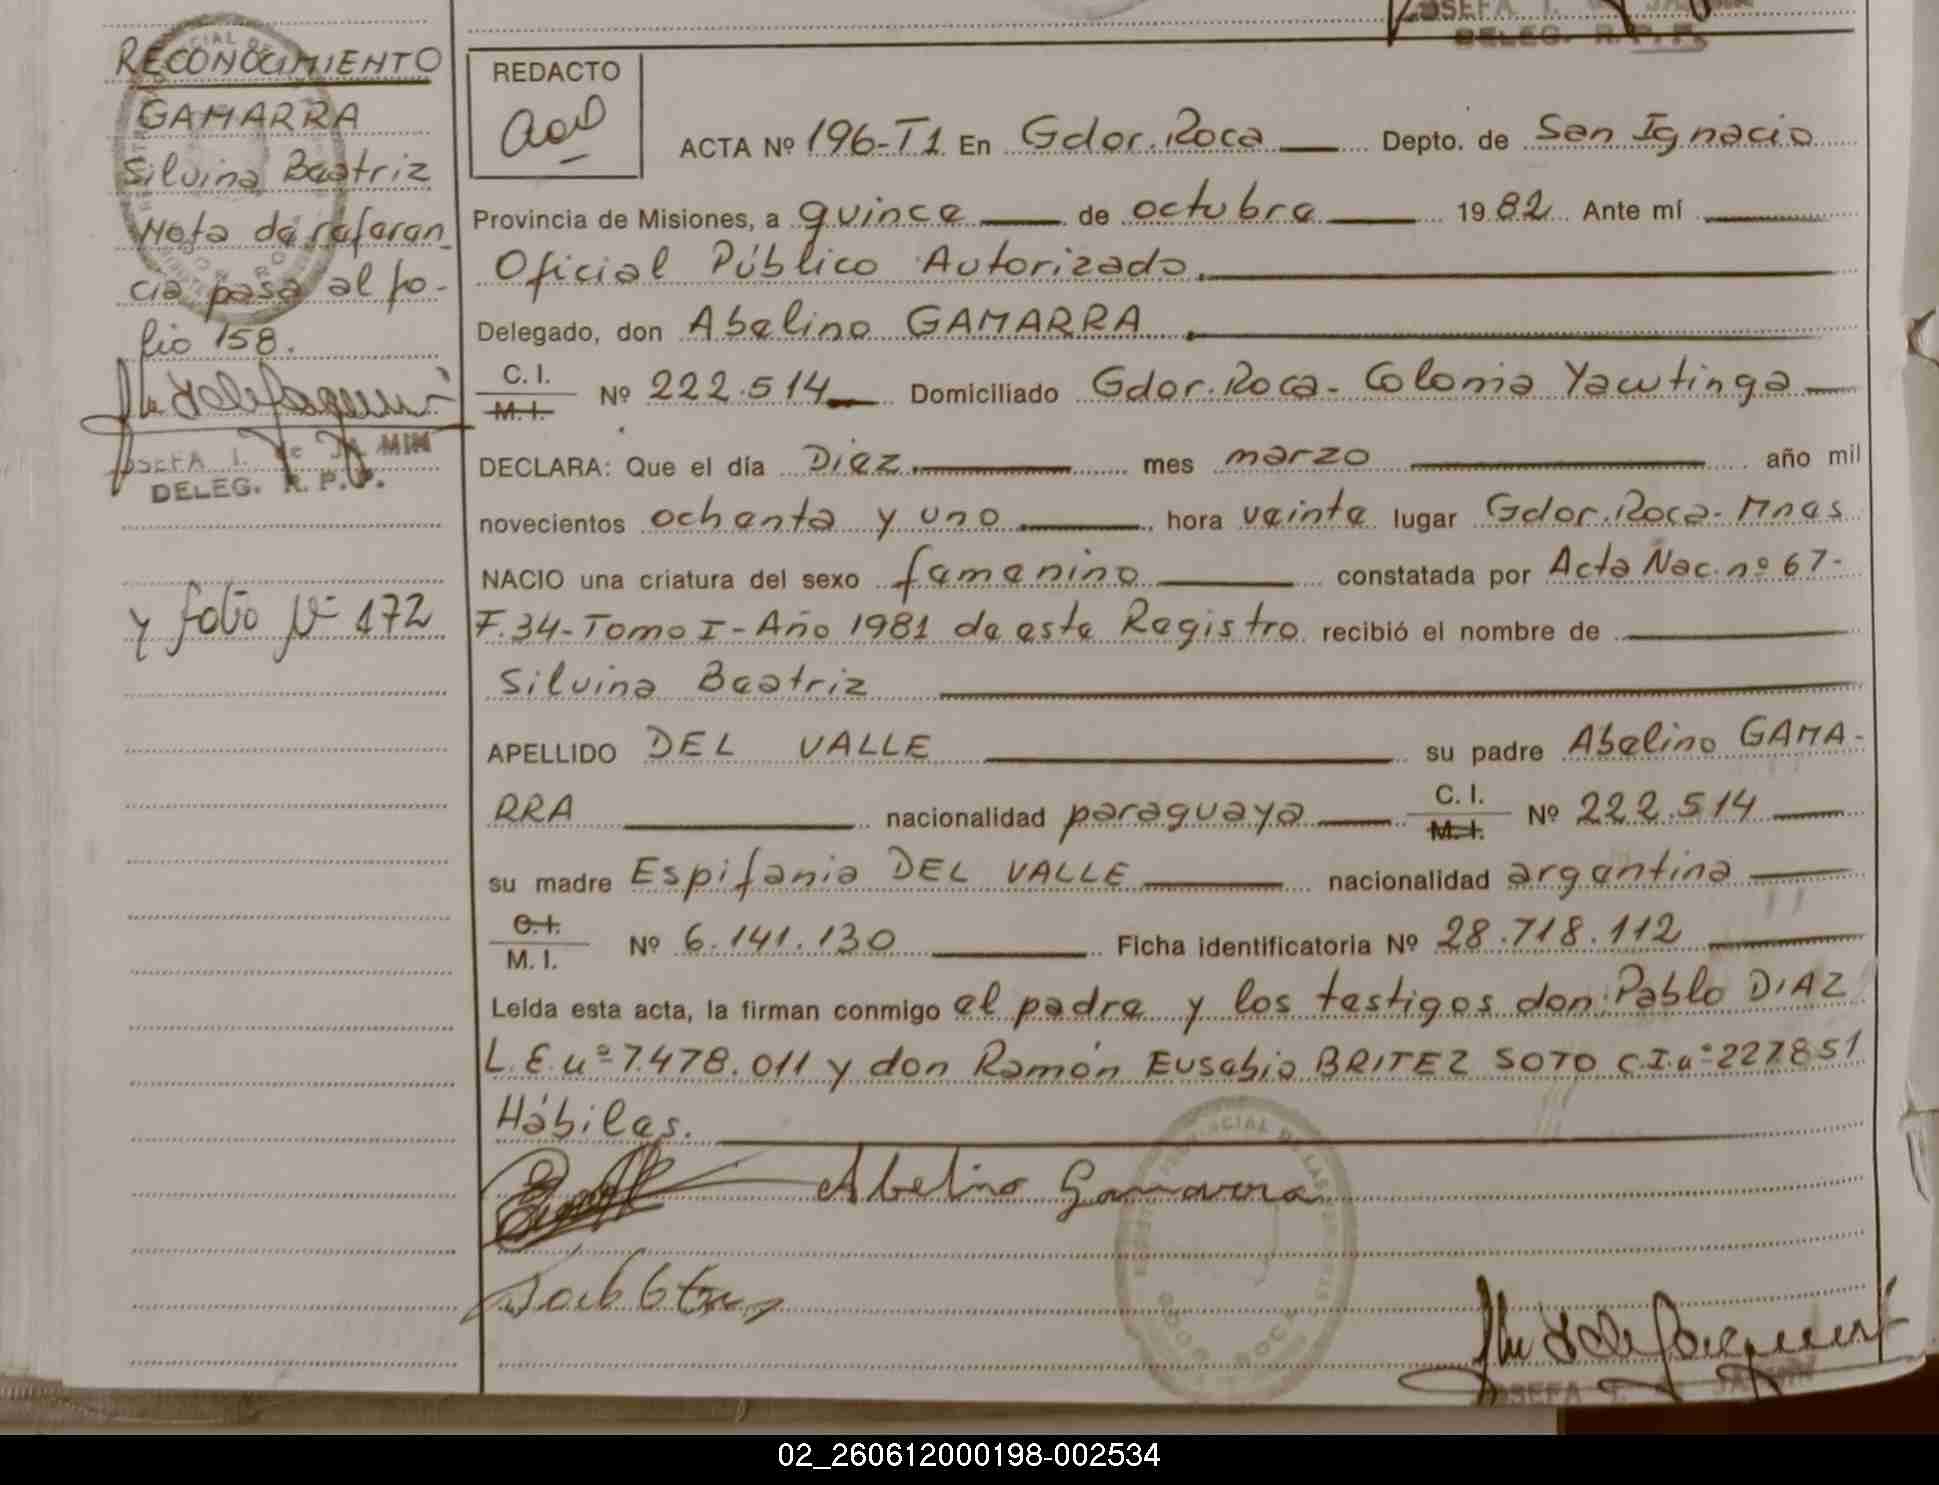 RECONOCIMIENTO
GAMARRA
Silvina Beatriz
Nota de referen
cia pasa al fo-
lio 158.
DELEG. R.P.P.
y folio Nº 172
DELEG. R.P.P.
REDACTO
ACTA Nº 196-T1 En Gdor. Roca Depto. de San Ignacio
Provincia de Misiones, a quince de octubre 1982 Ante mí
Oficial Público Autorizado.
Delegado, don Abelino GAMARRA
C. I.
M. I. Nº 222.514 Domiciliado Gdor. Roca - Colonia Yacutinga
DECLARA: Que el día Diez mes marzo año mil
novecientos ochenta y uno hora veinte lugar Gdor. Roca - Mnes
NACIO una criatura del sexo femenino constatada por Acta Nac. nº 67-
F.34-Tomo I-Año 1981 de este Registro recibió el nombre de
Silvina Beatriz
APELLIDO DEL VALLE su padre Abelino GAMA-
RRA nacionalidad paraguaya C. I. M. I. Nº 222.514
su madre Espifania DEL VALLE nacionalidad argentina
C. I.
M. I. Nº 6.141.130 Ficha identificatoria Nº 28.718.112
Leída esta acta, la firman conmigo el padre y los testigos don Pablo DIAZ
L.E.nº 7.478.011 y don Ramón Eusebio BRITEZ SOTO C.I.nº 227851
Hábiles.
Abelino Gamarra
GDOR ROCA
JOSEFA I.
02_260612000198-002534